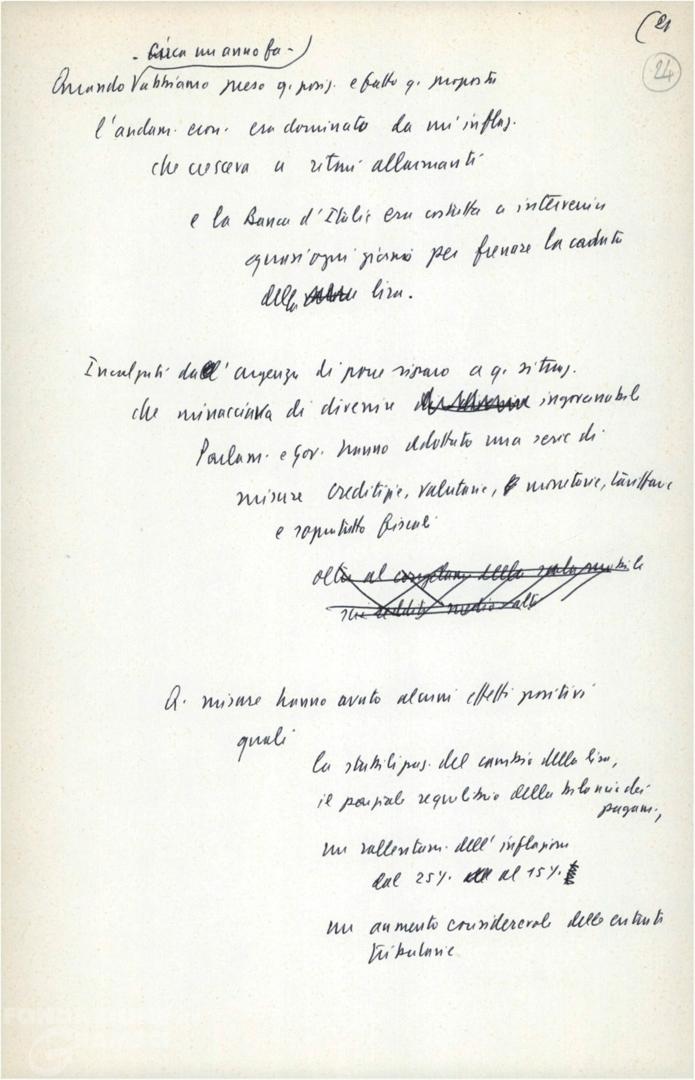 (21
24
- circa un anno fa -
Quando abbiamo preso q. posiz. e fatto q. proposte
l'andam. econ. era dominato da un'inflaz.
che cresceva a ritmi allarmanti
e la Banca d'Italia era costretta a intervenire
quasi ogni giorno per frenare la caduta
della lira.
Inculzati dall'urgenza di porre riparo a q. situaz.
che minacciava di divenire ingovernabile
Parlam. e Gov. hanno adottato una serie di
misure creditizie, valutarie, monetarie, tariffarie
e soprattutto fiscali
oltre al congelam. della scala mobile
sui redditi medio-alti
Q. misure hanno avuto alcuni effetti positivi
quali
la stabilizzaz. del cambio della lira,
il parziale requilibrio della bilancia dei
pagam.,
un rallentam. dell'inflazione
dal 25% al 15%
un aumento considerevole delle entrate
tributarie